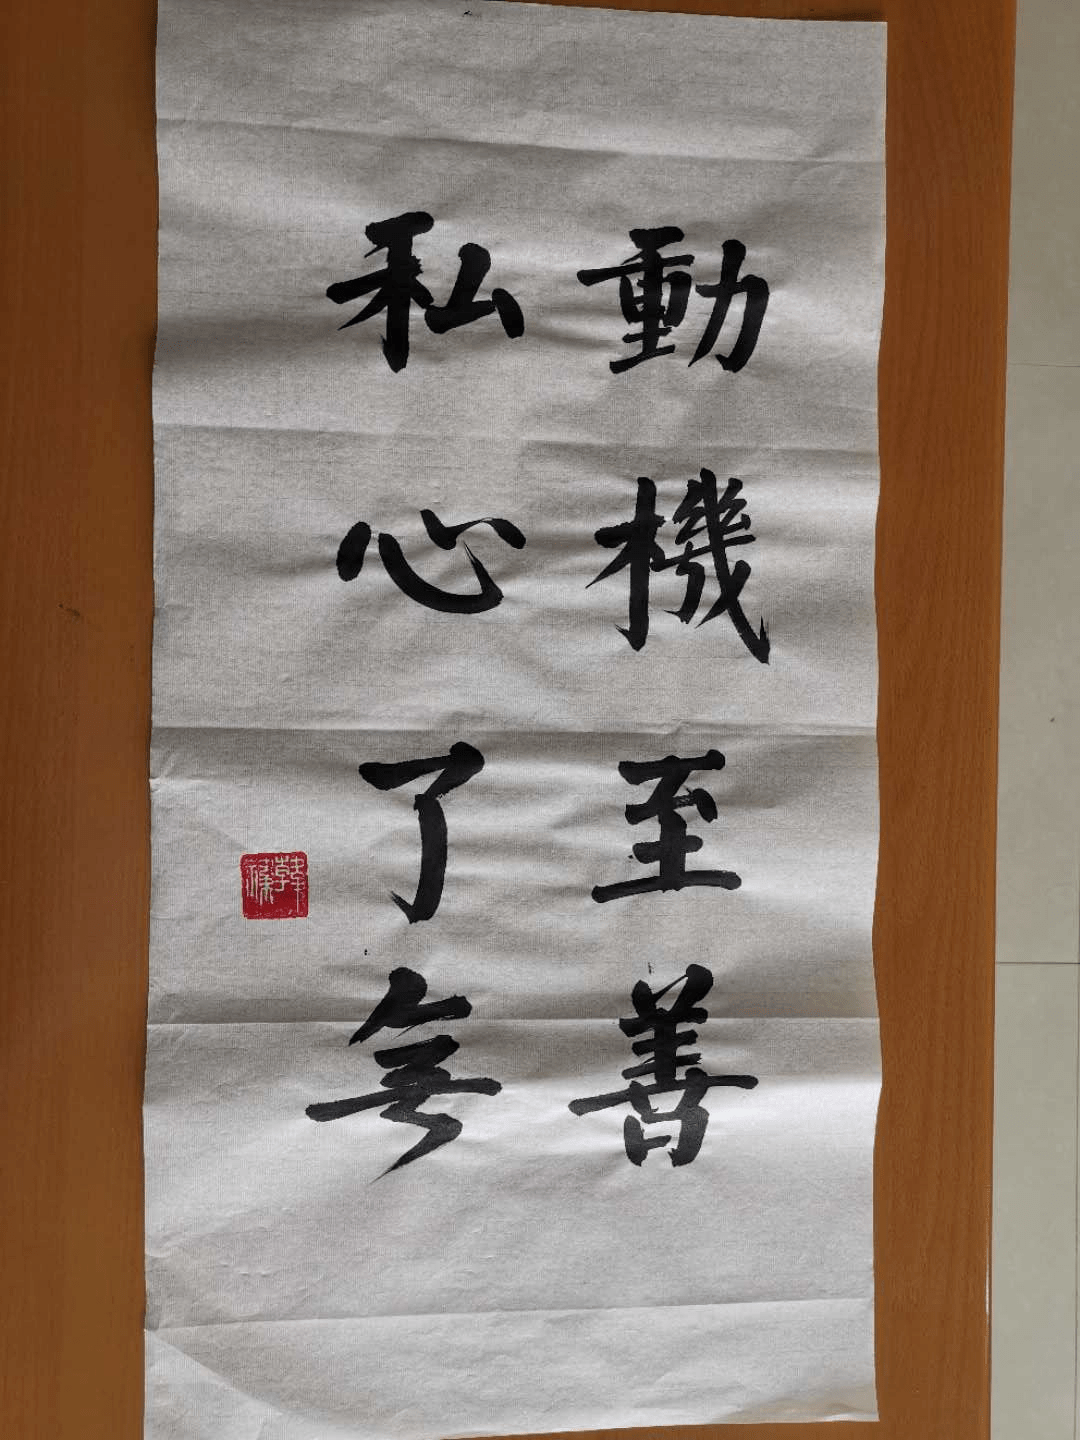 動機至善
私心了無